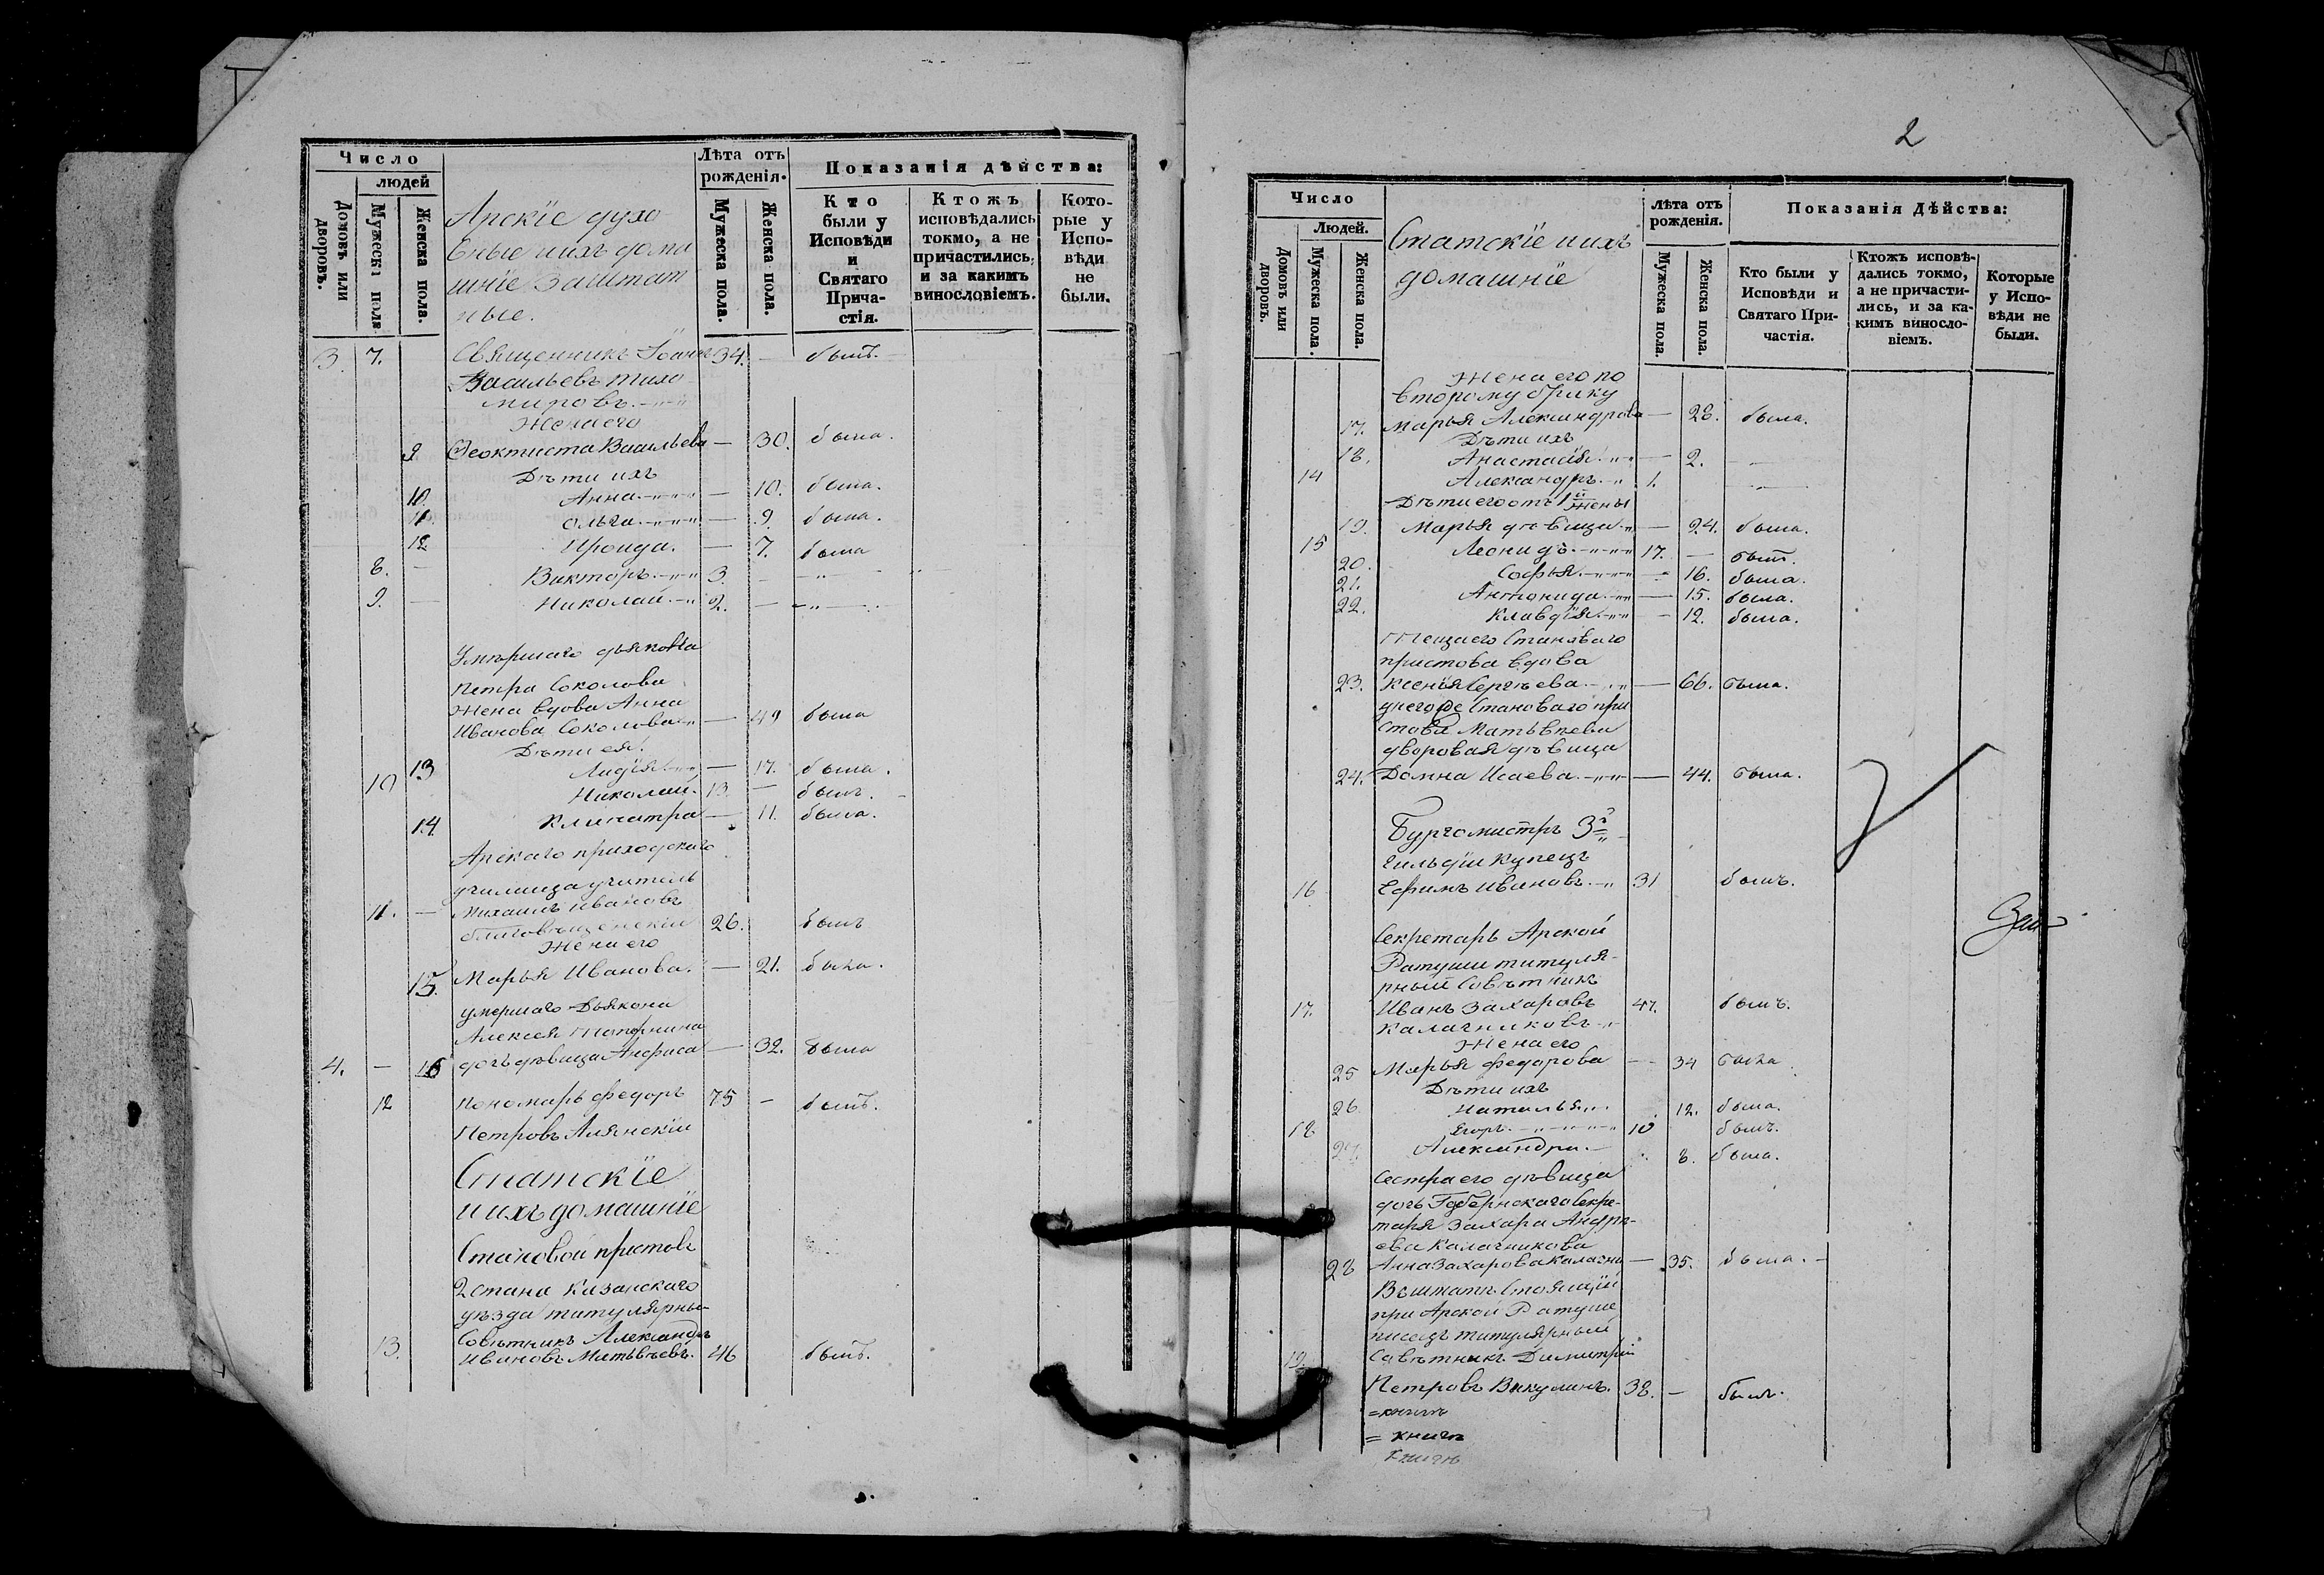 Число
людей
Домовъ или дворовъ.
Мужеска пола
Женска пола.
Арскіе духо
вные и ихъ дома
шніе заштат
ные.
Лѣта отъ
рожденія.
Мужеска пола.
Женска пола.
Показанія дѣйства:
Кто
были у
Исповѣди
и
Святаго
Прича-
стія.
Ктожъ
исповѣдались
токмо, а не
причастились,
и за какимъ
винословіемъ.
Кото-
рые у
Испо-
вѣди
не
были.
3. 7. Священникъ Іоаннъ 34. — былъ.
Васильевъ Тихо
мировъ.
Жена его
9 Феоктиста Васильева — 30. была.
Дѣти ихъ
10. Анна — 10. была.
11. Ольга — 9. была.
12 Ираида. — 7. была
8. — Викторъ 3. —
9. — Николай 2. —
Умершаго дьякона
Петра Соколова
жена вдова Анна
Иванова Соколова — 49 была
Дѣти ея.
13 Лидія — 17. была.
10 Николай. 13. — былъ.
14 Клиопатра — 11. была.
Арскаго приходскаго
училища учитель
11. — Михаилъ Ивановъ
Благовѣщенскій 26. былъ
Жена его
15. Марья Иванова. — 21. была.
умершаго Дьякона
Алексея
4. — 16 дочь дѣвица Анфиса — 32. была
12 Пономарь Федоръ 75 — былъ.
Петровъ Алянскій
Статскіе
и ихъ домашніе
Становой приставъ
2 стана Казанскаго
уѣзда титулярный
13. Совѣтникъ Александръ
Ивановъ Матвѣевъ. 46 былъ.
2
Число
Людей.
Домовъ или дворовъ.
Мужеска пола.
Женска пола.
Статскіе и ихъ
домашніе
Лѣта отъ
рожденія.
Мужеска пола.
Женска пола.
Показанія Дѣйства:
Кто были у
Исповѣди и
Святаго При-
частія.
Ктожъ исповѣ-
дались токмо,
а не причасти-
лись, и за ка-
кимъ виносло-
віемъ.
Которые
у Испо-
вѣди не
были.
Жена его по
второму браку
17. Марья Александрова — 28. была.
Дѣти ихъ
18. Анастасія — 2.
14 Александръ 1.
Дѣти его отъ 1й жены
19. Марья дѣвица — 24. была.
15 Леонидъ 17. — былъ.
20. Софья — 16. была.
21. Антонида — 15. была.
22. Клавдія — 12. была.
Теща его Становаго
пристова вдова
23. Ксенья Сергѣева — 66. была.
у него же Становаго при
става Матвѣева
дворовая дѣвица
24. Домна Исаева — 44. была.
Бургомистръ 3й
гильдіи купецъ
16 Ефимъ Ивановъ 31 былъ.
Секретарь Арской
Ратуши титуля-
рный Совѣтникъ
17. Иванъ Захаровъ 47. былъ.
Калачниковъ
Жена его
25 Марья Федорова — 34 была
Дѣти ихъ
26 Наталья 12. была.
18 Егоръ 10 былъ.
27. Александра 8. была.
Сестра его дѣвица
дочь Губернскаго Секре-
таря Захара Андре-
ева Калачникова
28 Анна Захарова Калачни — 35. была.
Въ штатѣ Стоящій
при Арской Ратуше
писецъ титулярный
19. Совѣтникъ Димитрій
Петровъ Викулинъ. 38. — былъ.